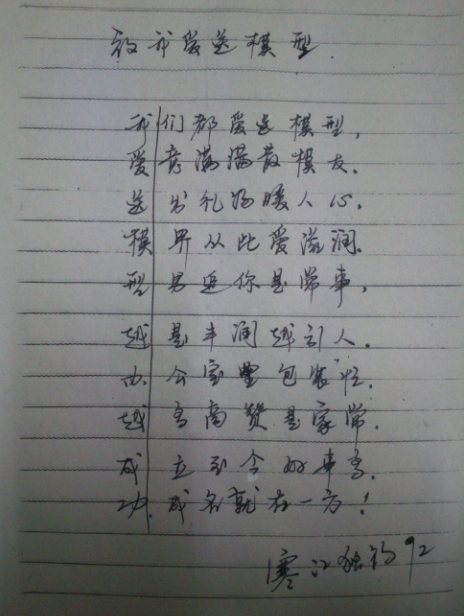 祝我爱送模型
我们都爱送模型,
爱意满满散模友.
送出礼物暖人心,
模界从此爱滋润.
型男送你是常事,
越是丰润越引人.
办公室里包装忙,
越多高赞是家常.
成立至今好事多,
功成名就在一方!
寒江独钓92